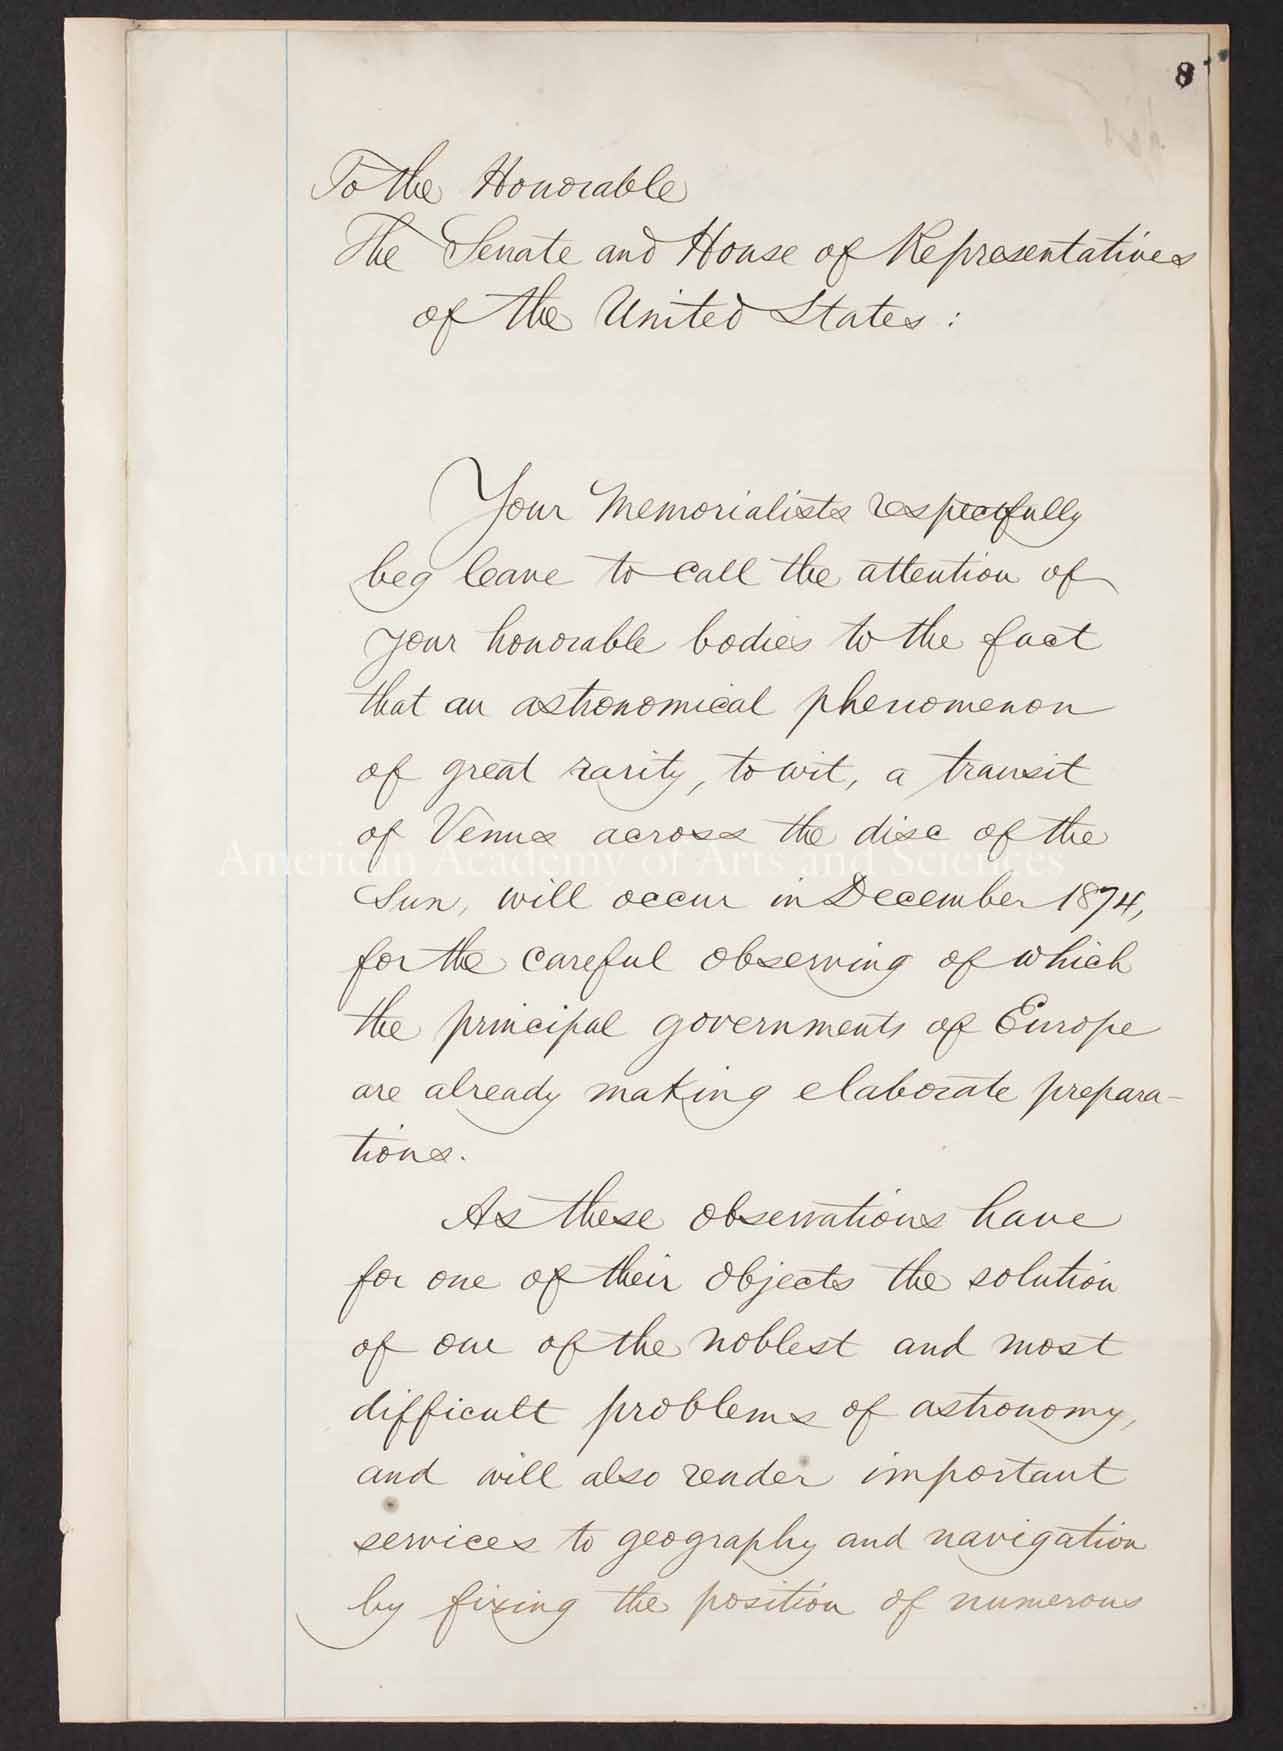 8
To the Honorable
The Senate and House of Representatives
of the United States:
Your Memorialists respectfully
beg leave to call the attention of
your honorable bodies to the fact
that an astronomical phenomenon
of great rarity, to wit, a transit
of Venus across the disc of the
American Academy of Arts and Sciences
Sun, will occur in December 1874,
for the careful observing of which
the principal governments of Europe
are already making elaborate prepara-
tions.
As these observations have
for one of their objects the solution
of one of the noblest and most
difficult problems of astronomy,
and will also render important
services to geography and navigation
by fixing the position of numerous